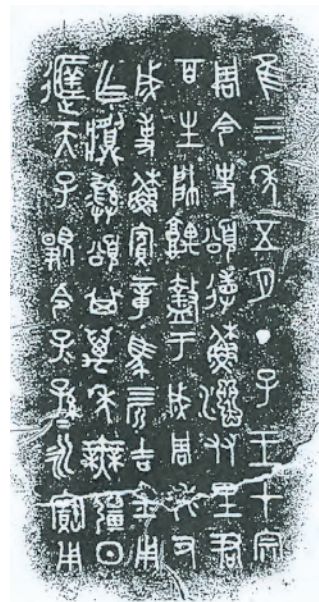 隹三年五月丁子王才宗
周令史頌省穌姻友里君
百生帥堣盩于成周休又
成事穌賓章馬四匹吉金用
乍彝頌其萬年無疆日
天子令子=孫=永寶用